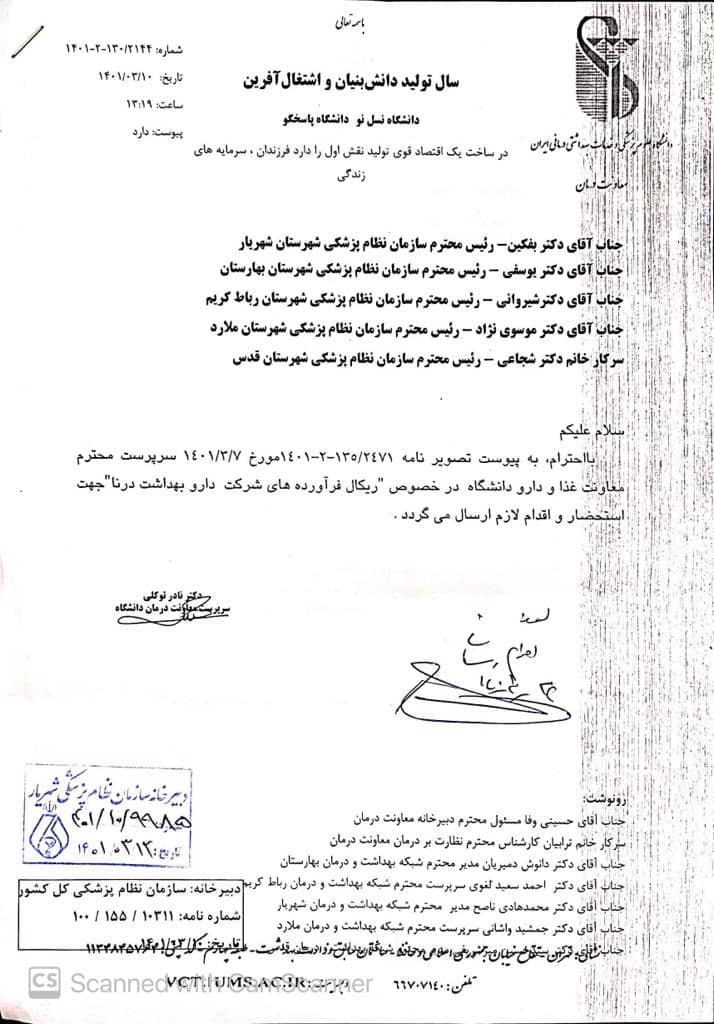 باسمه تعالی
شماره: ۱۴۰۱-۲-۱۳۰/۲۱۴۴
تاریخ: ۱۴۰۱/۰۳/۱۰
ساعت: ۱۳:۱۹
پیوست: دارد
سال تولید دانش‌بنیان و اشتغال‌آفرین
دانشگاه نسل نو دانشگاه پاسخگو
در ساخت یک اقتصاد قوی تولید نقش اول را دارد فرزندان ، سرمایه های
زندگی
دانشگاه علوم پزشکی و خدمات بهداشتی درمانی ایران
معاونت درمان
جناب آقای دکتر بفکین- رئیس محترم سازمان نظام پزشکی شهرستان شهریار
جناب آقای دکتر یوسفی - رئیس محترم سازمان نظام پزشکی شهرستان بهارستان
جناب آقای دکترشیروانی - رئیس محترم سازمان نظام پزشکی شهرستان رباط کریم
جناب آقای دکتر موسوی نژاد - رئیس محترم سازمان نظام پزشکی شهرستان ملارد
سرکار خانم دکتر شجاعی - رئیس محترم سازمان نظام پزشکی شهرستان قدس
سلام علیکم
بااحترام، به پیوست تصویر نامه ۱۴۰۱-۲-۱۳۵/۲۴۷۱مورخ ۱۴۰۱/۳/۷ سرپرست محترم
معاونت غذا و دارو دانشگاه در خصوص "ریکال فرآورده های شرکت دارو بهداشت درنا"جهت
استحضار و اقدام لازم ارسال می گردد .
دکتر نادر توکلی
سرپرست معاونت درمان دانشگاه
دبیرخانه سازمان نظام پزشکی شهریار
تاریخ:
رونوشت:
جناب آقای حسینی وفا مسئول محترم دبیرخانه معاونت درمان
سرکار خانم ترابیان کارشناس محترم نظارت بر درمان معاونت درمان
جناب آقای دکتر دانوش دمیریان مدیر محترم شبکه بهداشت و درمان بهارستان
جناب آقای دکتر احمد سعید لغوی سرپرست محترم شبکه بهداشت و درمان رباط کریم
جناب آقای دکتر محمدهادی ناصح مدیر محترم شبکه بهداشت و درمان شهریار
جناب آقای دکتر جمشید واشانی سرپرست محترم شبکه بهداشت و درمان ملارد
جناب آقای دکتر
دبیرخانه: سازمان نظام پزشکی کل کشور
شماره نامه: ۱۰۳۱۱ / ۱۵۵ / ۱۰۰
تلفن: ۶۶۷۰۷۱۴۰
VCT.IUMS.AC.IR
CS Scanned with CamScanner